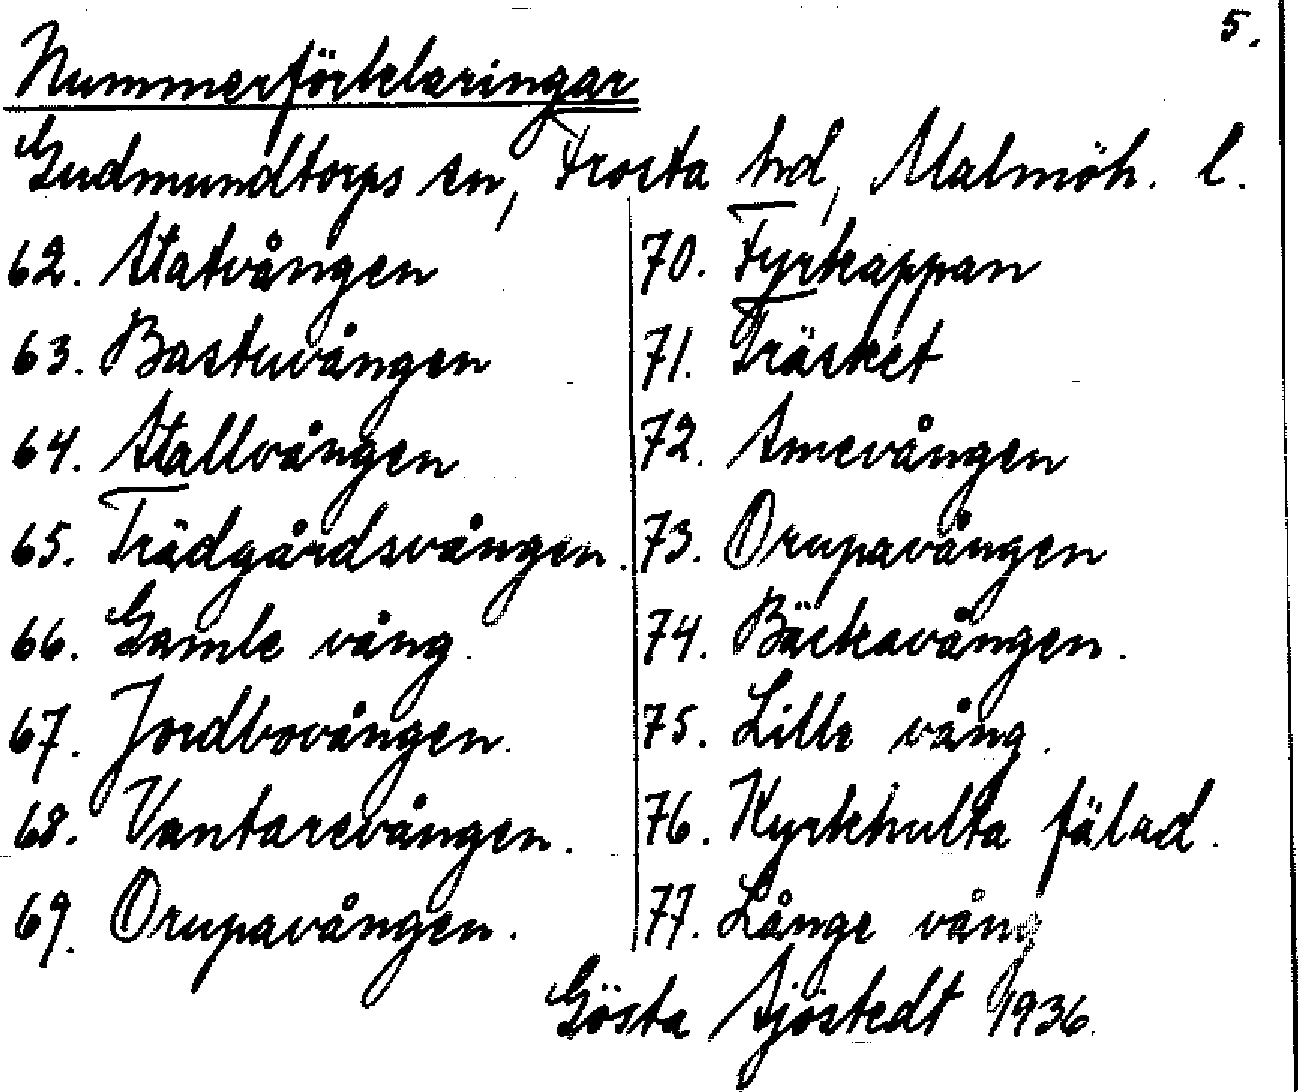 5.
Nummerförklaringar
Gudmundtorps sn, Frosta hd, Malmöh. l.
62. Statvången
63. Bastuvången
64. Stallvången
65. Trädgårdsvången.
66. Gamle vång.
67. Jordbovången.
68. Vantarevången.
69. Orupavången.
70. Fyrkappan
71. Träsket
72. Smevången
73. Orupavången
74. Bäckavången.
75. Lille vång.
76. Kyrkhulta fälad.
77. Långe vång
Gösta Sjöstedt 1936.